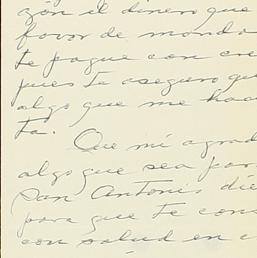 zón el dinero que
favor de manda
te pague con cre
pues te aseguro qu
algo que me hac
ta.
Que mi agrad
algo que sea par
San Antonio die
para que te cons
con salud en c